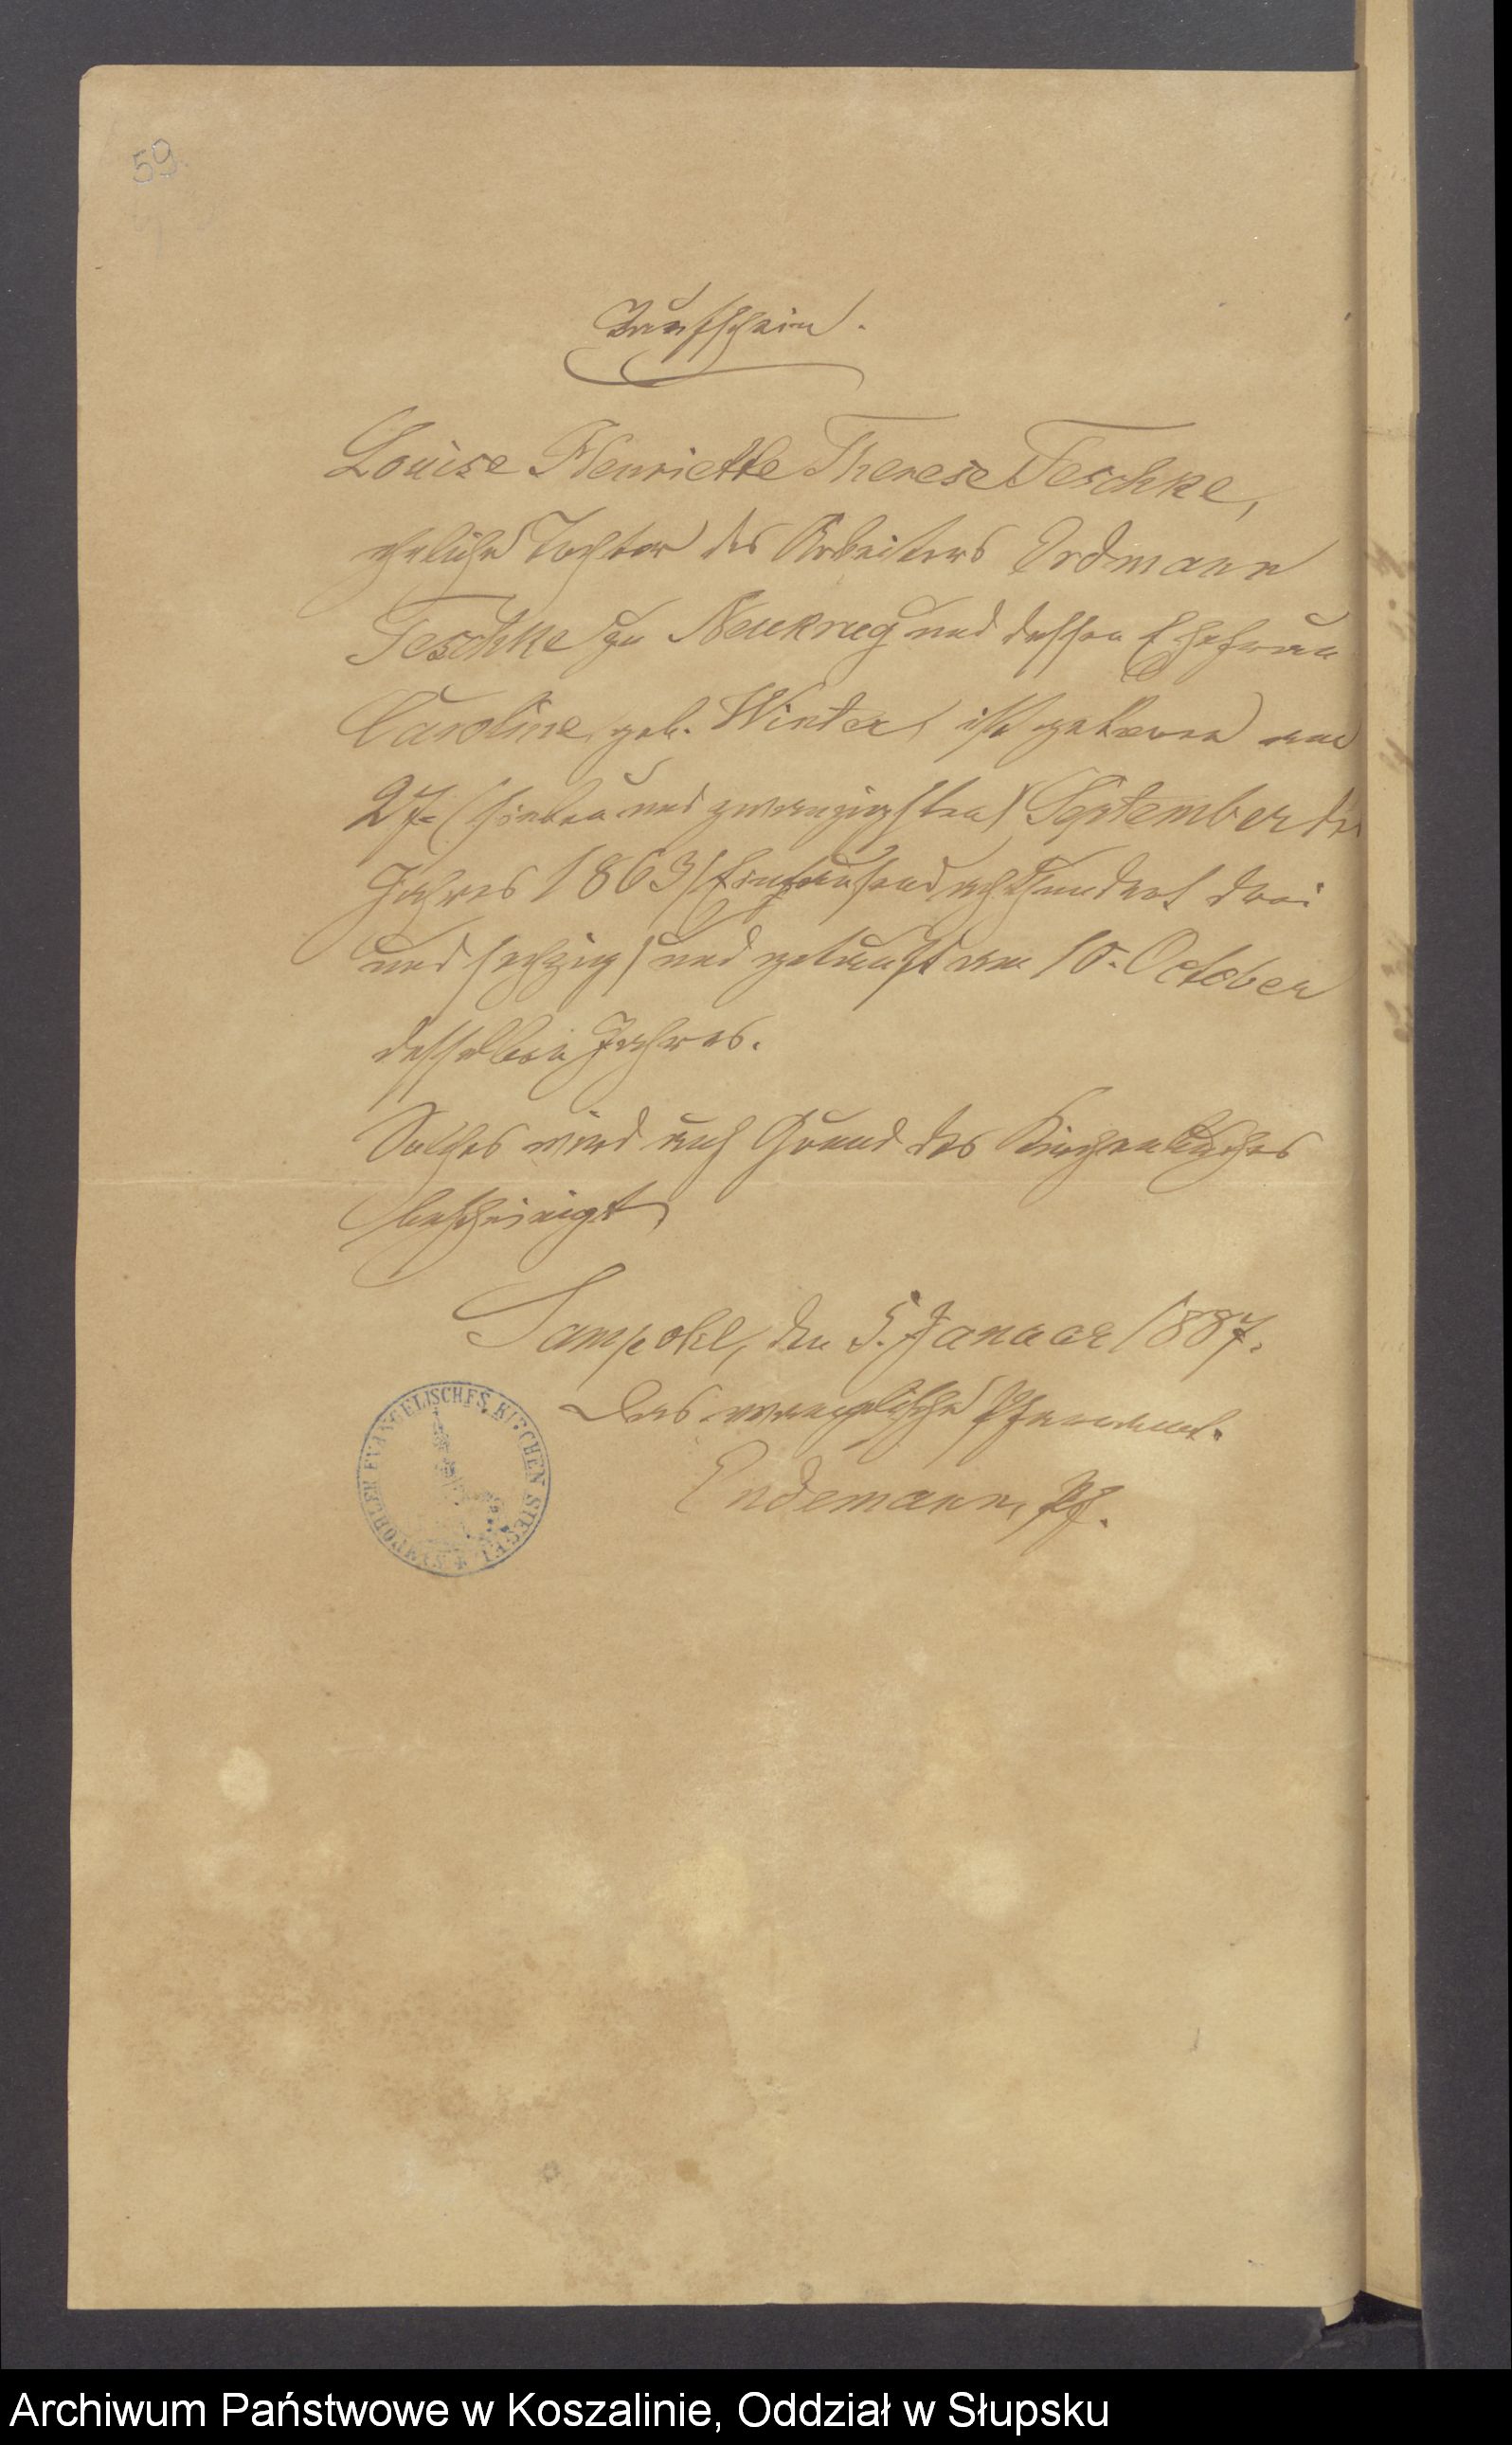 59.
Taufschein.
Louise Henriette Therese Teschke,
eheliche Tochter des Arbeiters Erdmann
Teschke zu Neukrug und dessen Ehefrau
Caroline, geb. Winter, ist geboren am
27. (sieben und zwanzigsten) September des
Jahres 1863 (Eintausend achthundert drei
und sechzig) und getauft am 10. October
desselben Jahres.
Solches wird auf Grund des Kirchenbuches
bescheinigt
Sampohl, den 5. Januar 1887.
Das evangelische Pfarramt.
Endemann, Pf.
SAMPOHLER EVANGELISCHES KIRCHEN SIEGEL
Archiwum Państwowe w Koszalinie, Oddział w Słupsku